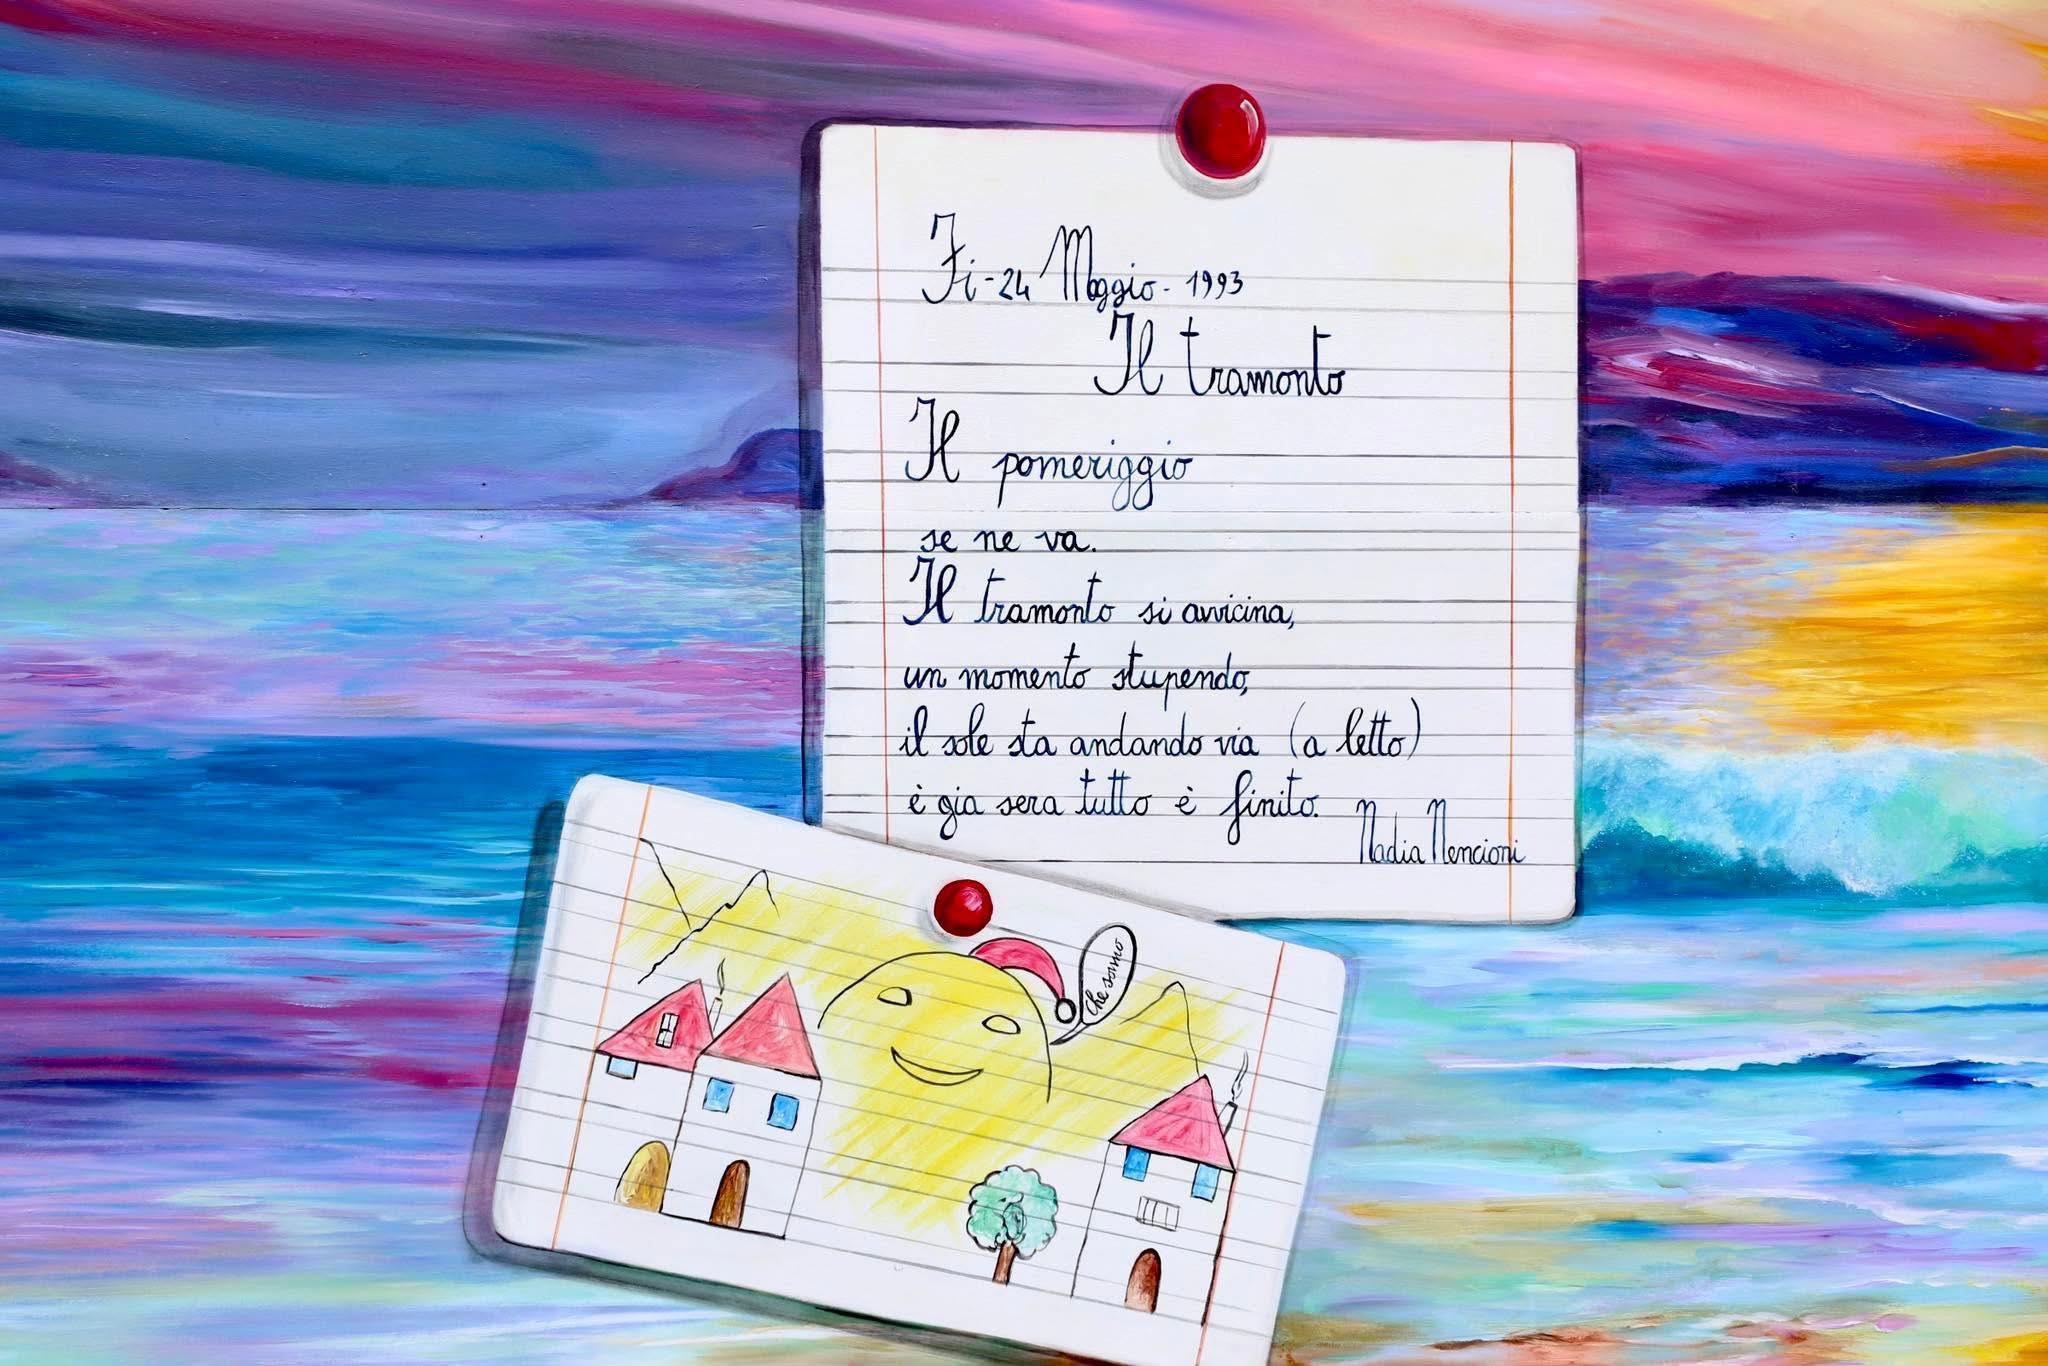 Fi-24 Maggio-1993
Il tramonto
Il pomeriggio
se ne va.
Il tramonto si avvicina,
un momento stupendo,
il sole sta andando via (a letto)
è gia sera tutto è finito.
Nadia Nencioni
che sonno